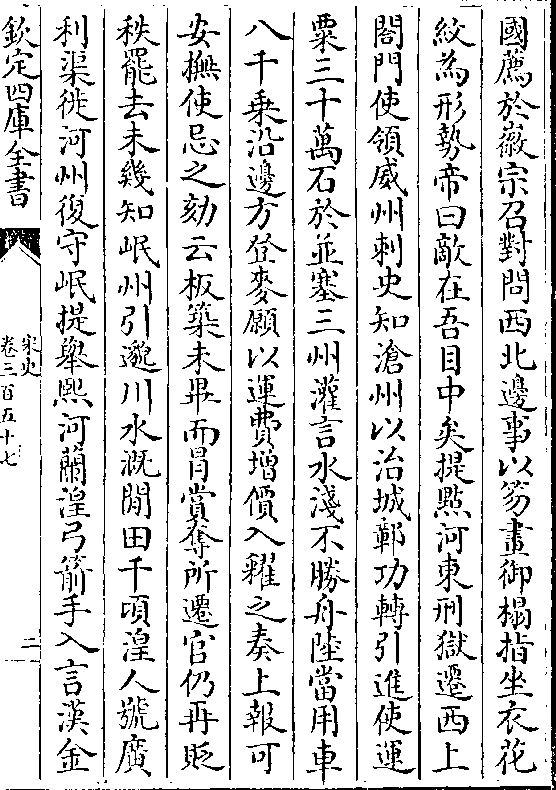 國薦於徽宗召對問西北邊事以笏畫御榻指坐衣花
紋為形勢帝曰敵在吾目中矣提點河東刑獄遷西上
閤門使領威州刺史知滄州以治城鄣功轉引進使運
粟三十萬石於並塞三州灌言水淺不勝舟陸當用車
八千乗沿邊方登麥願以運費增價入糴之奏上報可
安撫使忌之劾云板築未畢而冒賞奪所遷官仍再貶
秩罷去未幾知岷州引邈川水溉閒田千頃湟人號廣
利渠徙河州復守岷提舉熙河蘭湟弓箭手入言漢金
欽定四庫全書
宋史
卷三百五十七
二